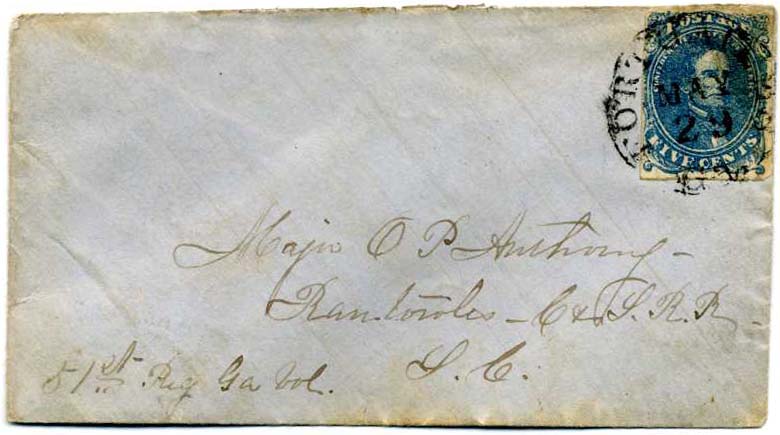 POSTA
MAY
29
FIVE CENTS
Major O P Anthony -
Rantowles - C & S. R. R -
S. C.
51st Reg Ga Vol.